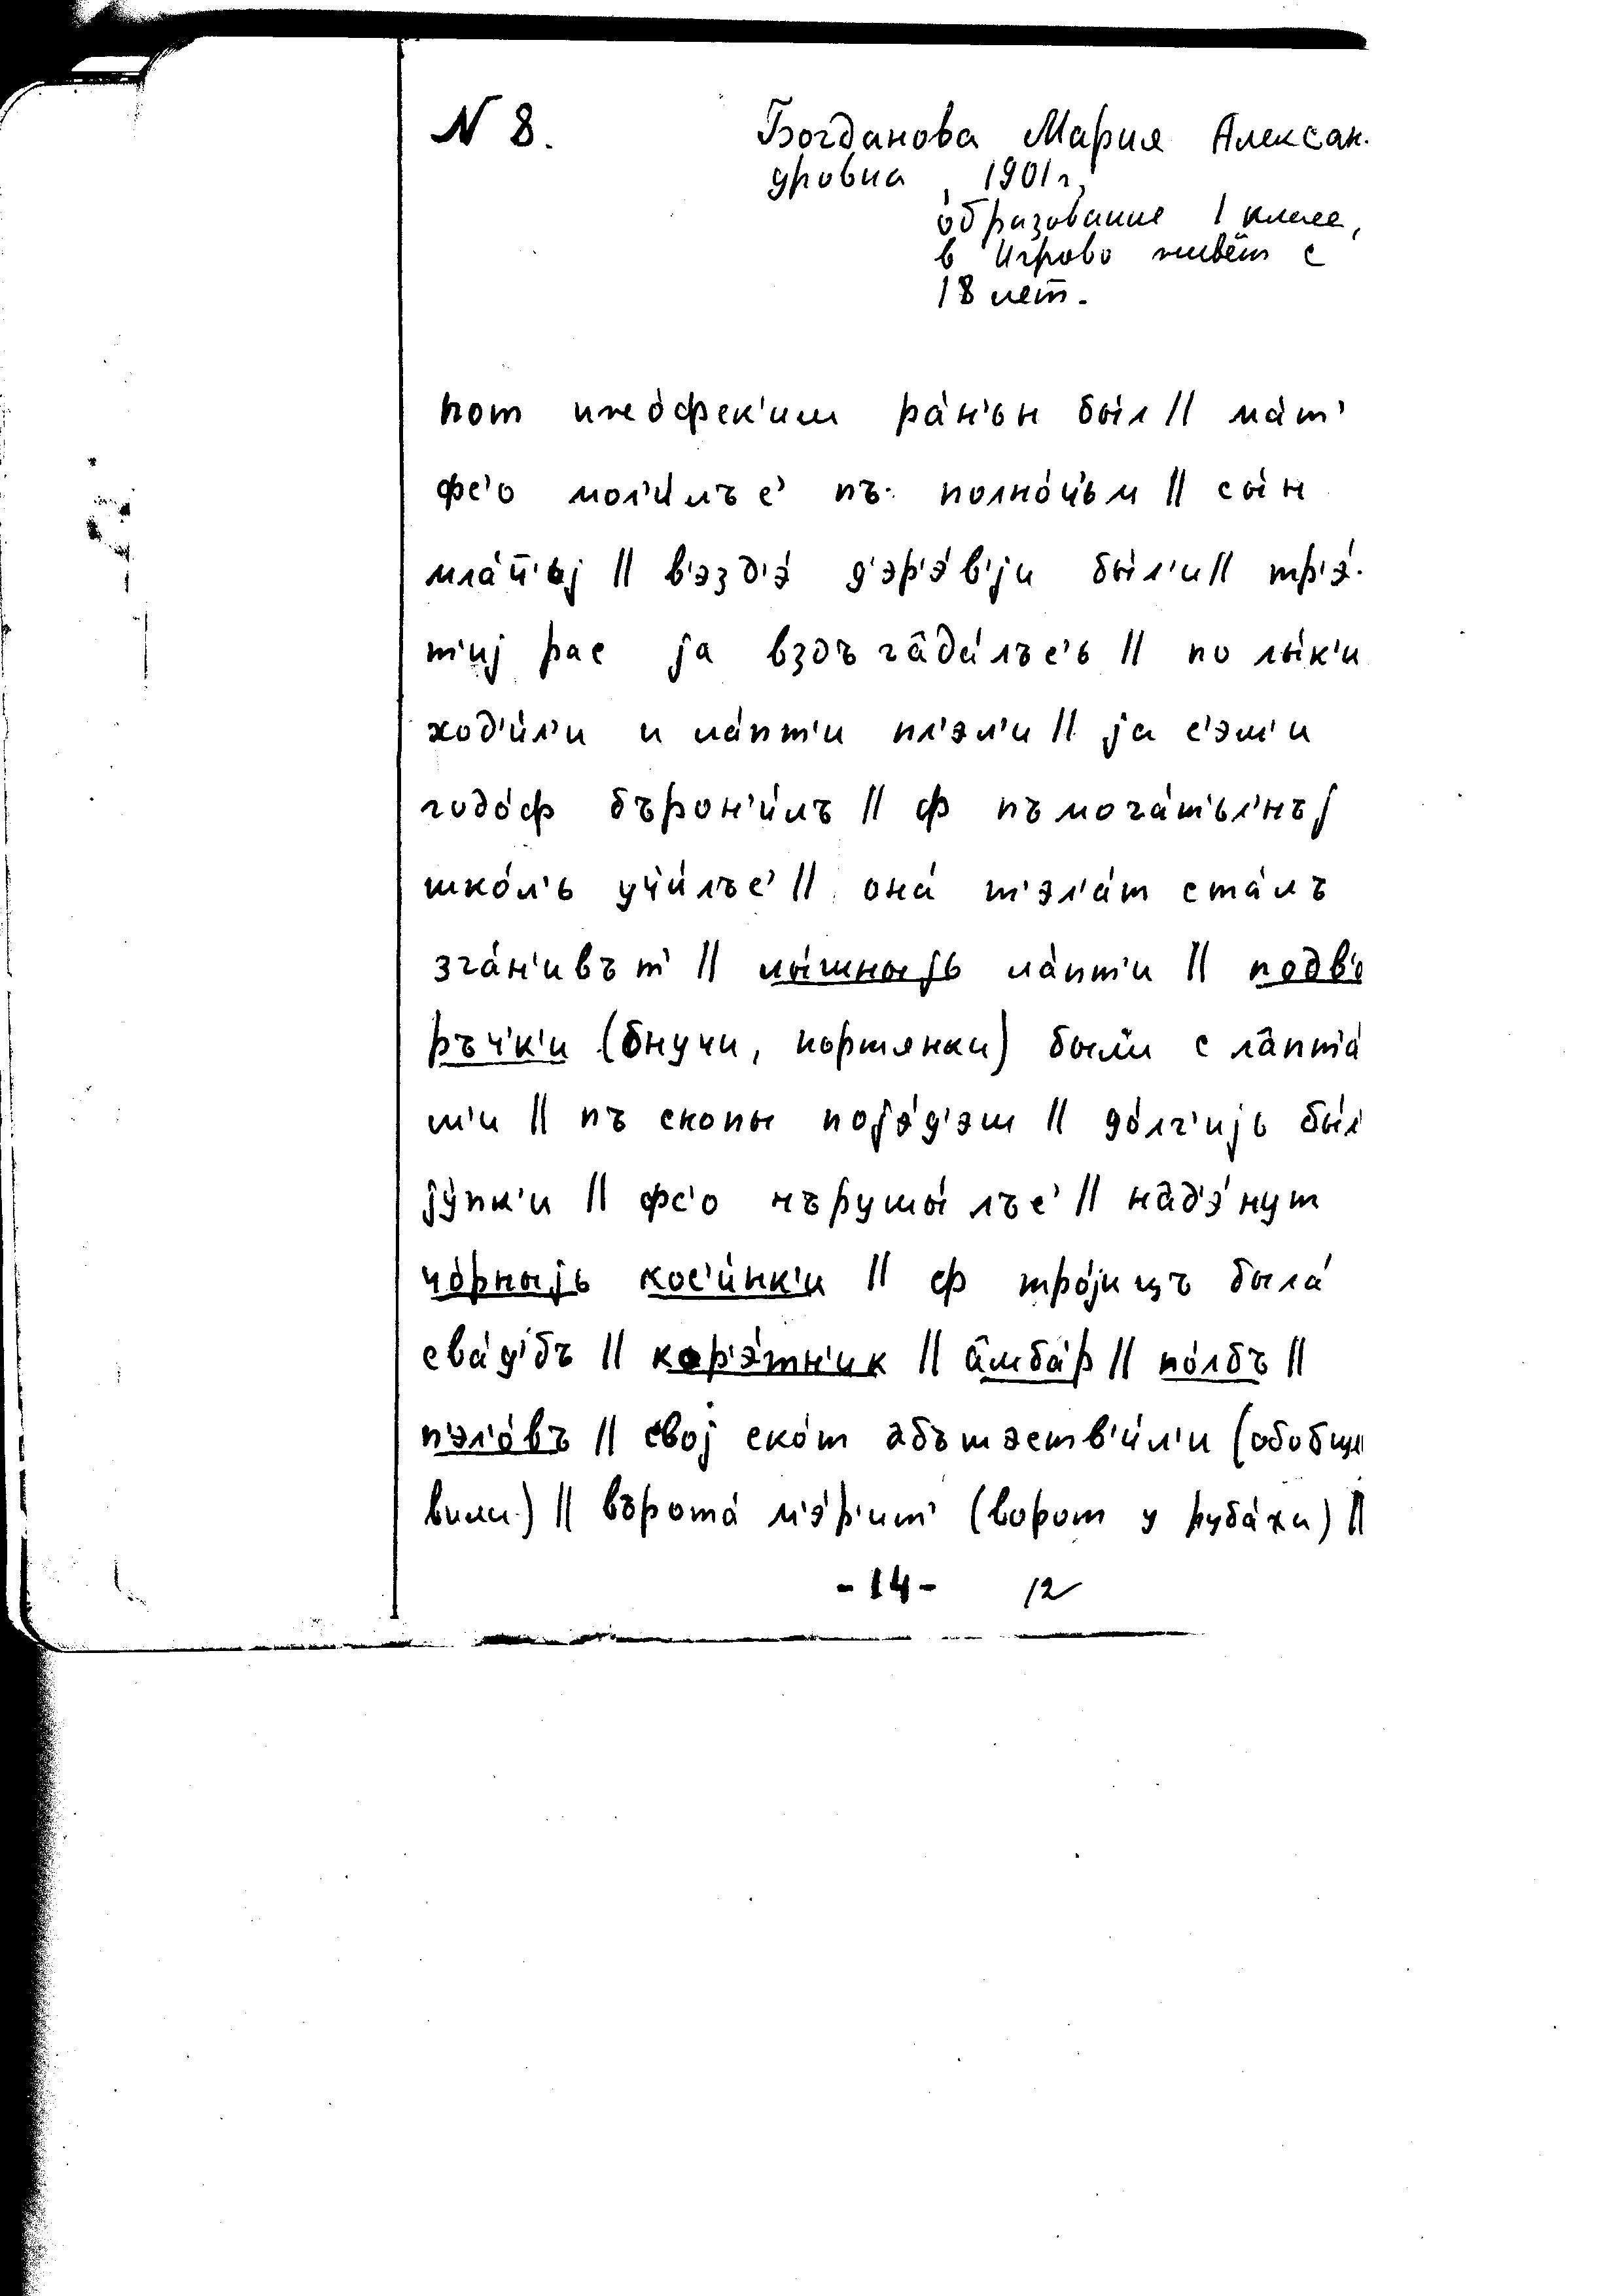 N 8. Богданова Мария Алексан-
дровна, 1901 г,
образование 1 класс,
в Игрово живёт с
18 лет.
пот ижо́фск'им ра́н'ьн бы́л || ма́т'
фс'о мол'и́лъс' пъ полно́ч'ьм || сы́н
мла́тшъј || в'эзд'э́ д'эр'э́в'ји бы́л'и || тр'э́-
т'иј рас ја вздъгâда́лъс'ь || по лы́к'и
ход'и́л'и и ла́пт'и пл'эл'и || ја с'эм'и
годо́ф бърон'и́лъ || ф пъмога́т'ьл'нъј
шко́л'ь учи́лъс' || она́ т'эл'а́т ста́лъ
зга́н'ивът' || лы́шныјь ла́пт'и || подв'о
ръч'к'и (онучи, портянки) были с лâпт'а́
м'и || пъ скопы појэ́д'эш || до́лг'ијь бы́л'
јупк'и || фс'о нърушы́лъс' || нâд'э́нут
чо́рныјь кос'и́нк'и || ф тро́јицъ была́
сва́д'бъ || кор'э́тн'ик || âмба́р || по́лбъ ||
п'эло́въ || свој ско́т абъшэств'и́л'и (обобще
вили) || върота́ м'э́р'ит' (ворот у руба́хи) ||
-14- 12